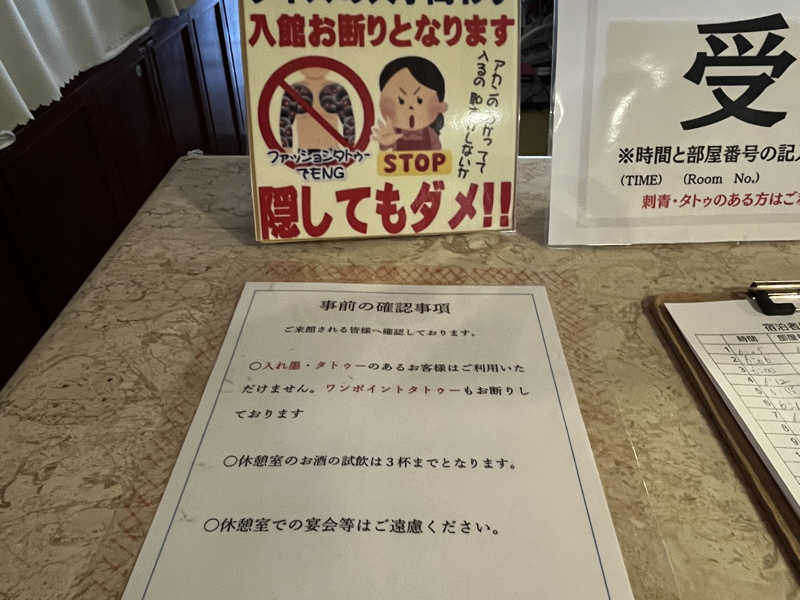 入館お断りとなります
ファッションタトゥー
でもNG
STOP
隠してもダメ!!
受
※時間と部屋番号の記入
(TIME) (Room No.)
刺青・タトゥのある方はご
事前の確認事項
ご来館される皆様へ確認しております。
○入れ墨・タトゥーのあるお客様はご利用いた
だけません。ワンポイントタトゥーもお断りし
ております
○休憩室のお酒の試飲は3杯までとなります。
○休憩室での宴会等はご遠慮ください。
宿泊者
時間 部屋
1
2
3
4
5
6
7
8
9
10